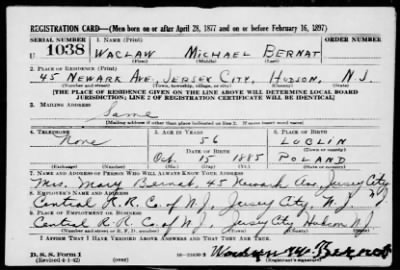 REGISTRATION CARD—(Men born on or after April 28, 1877 and on or before February 16, 1897)
SERIAL NUMBER 1. NAME (Print) ORDER NUMBER
U 1038 WACLAW MICHAEL BERNAT
(First) (Middle) (Last)
2. PLACE OF RESIDENCE (Print)
45 NEWARK AVE, JERSEY CITY, HUDSON, N.J.
(Number and street) (Town, township, village, or city) (County) (State)
[THE PLACE OF RESIDENCE GIVEN ON THE LINE ABOVE WILL DETERMINE LOCAL BOARD
JURISDICTION; LINE 2 OF REGISTRATION CERTIFICATE WILL BE IDENTICAL]
3. MAILING ADDRESS
Same
[Mailing address if other than place indicated on line 2. If same insert word same]
4. TELEPHONE 5. AGE IN YEARS 6. PLACE OF BIRTH
None 56 LOOLIN
DATE OF BIRTH (Town or county)
Oct. 15 1885 POLAND
(Exchange) (Number) (Mo.) (Day) (Yr.) (State or country)
7. NAME AND ADDRESS OF PERSON WHO WILL ALWAYS KNOW YOUR ADDRESS
Mrs. Mary Bernat, 45 Newark Ave, Jersey City
8. EMPLOYER'S NAME AND ADDRESS
Central R.R. Co. of N.J., Jersey City, N.J.
9. PLACE OF EMPLOYMENT OR BUSINESS
Central R.R. Co. of N.J., Jersey City Hudson N.J.
(Number and street or R. F. D. number) (Town) (County) (State)
I AFFIRM THAT I HAVE VERIFIED ABOVE ANSWERS AND THAT THEY ARE TRUE.
D. S. S. Form 1
(Revised 4-1-42)